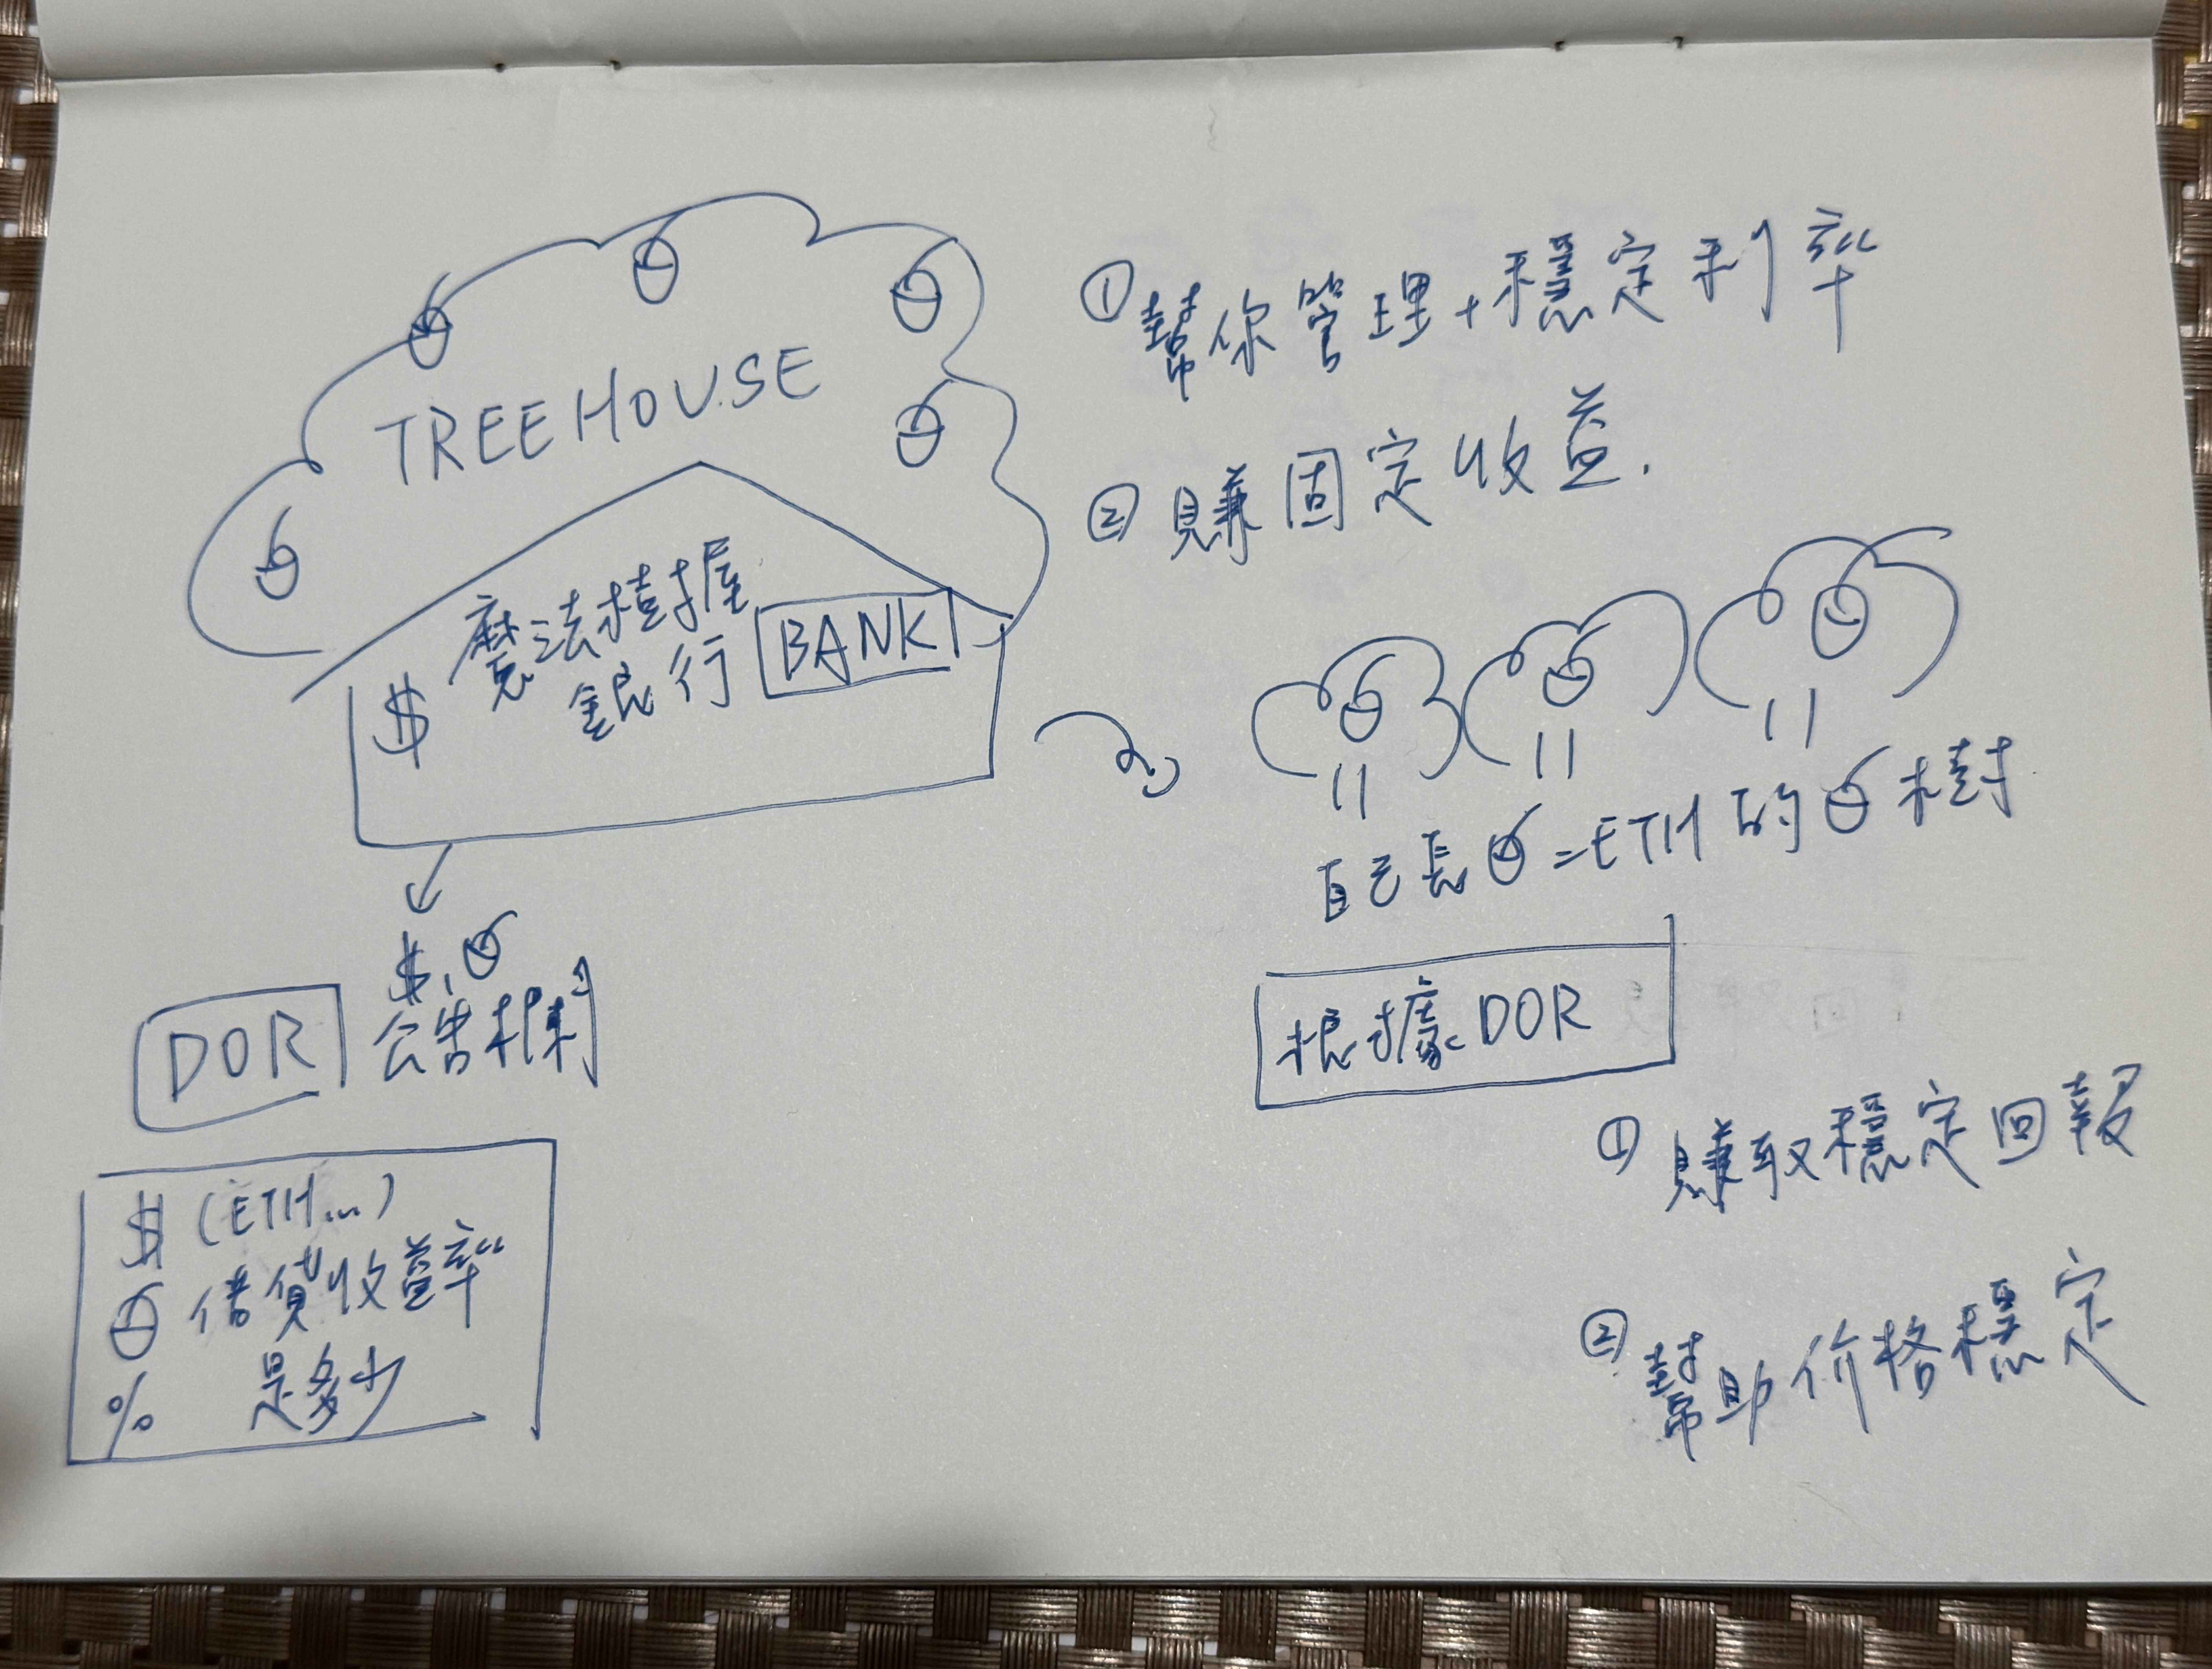 TREEHOUSE
$ 魔法樹屋
銀行 BANK
① 幫你管理+穩定利率
② 賺固定收益.
自己長 =ETH的 樹
$,
DOR 公告欄
$ (ETH...)
借貸收益率
% 是多少
根據DOR
① 賺取穩定回報
② 幫助价格穩定